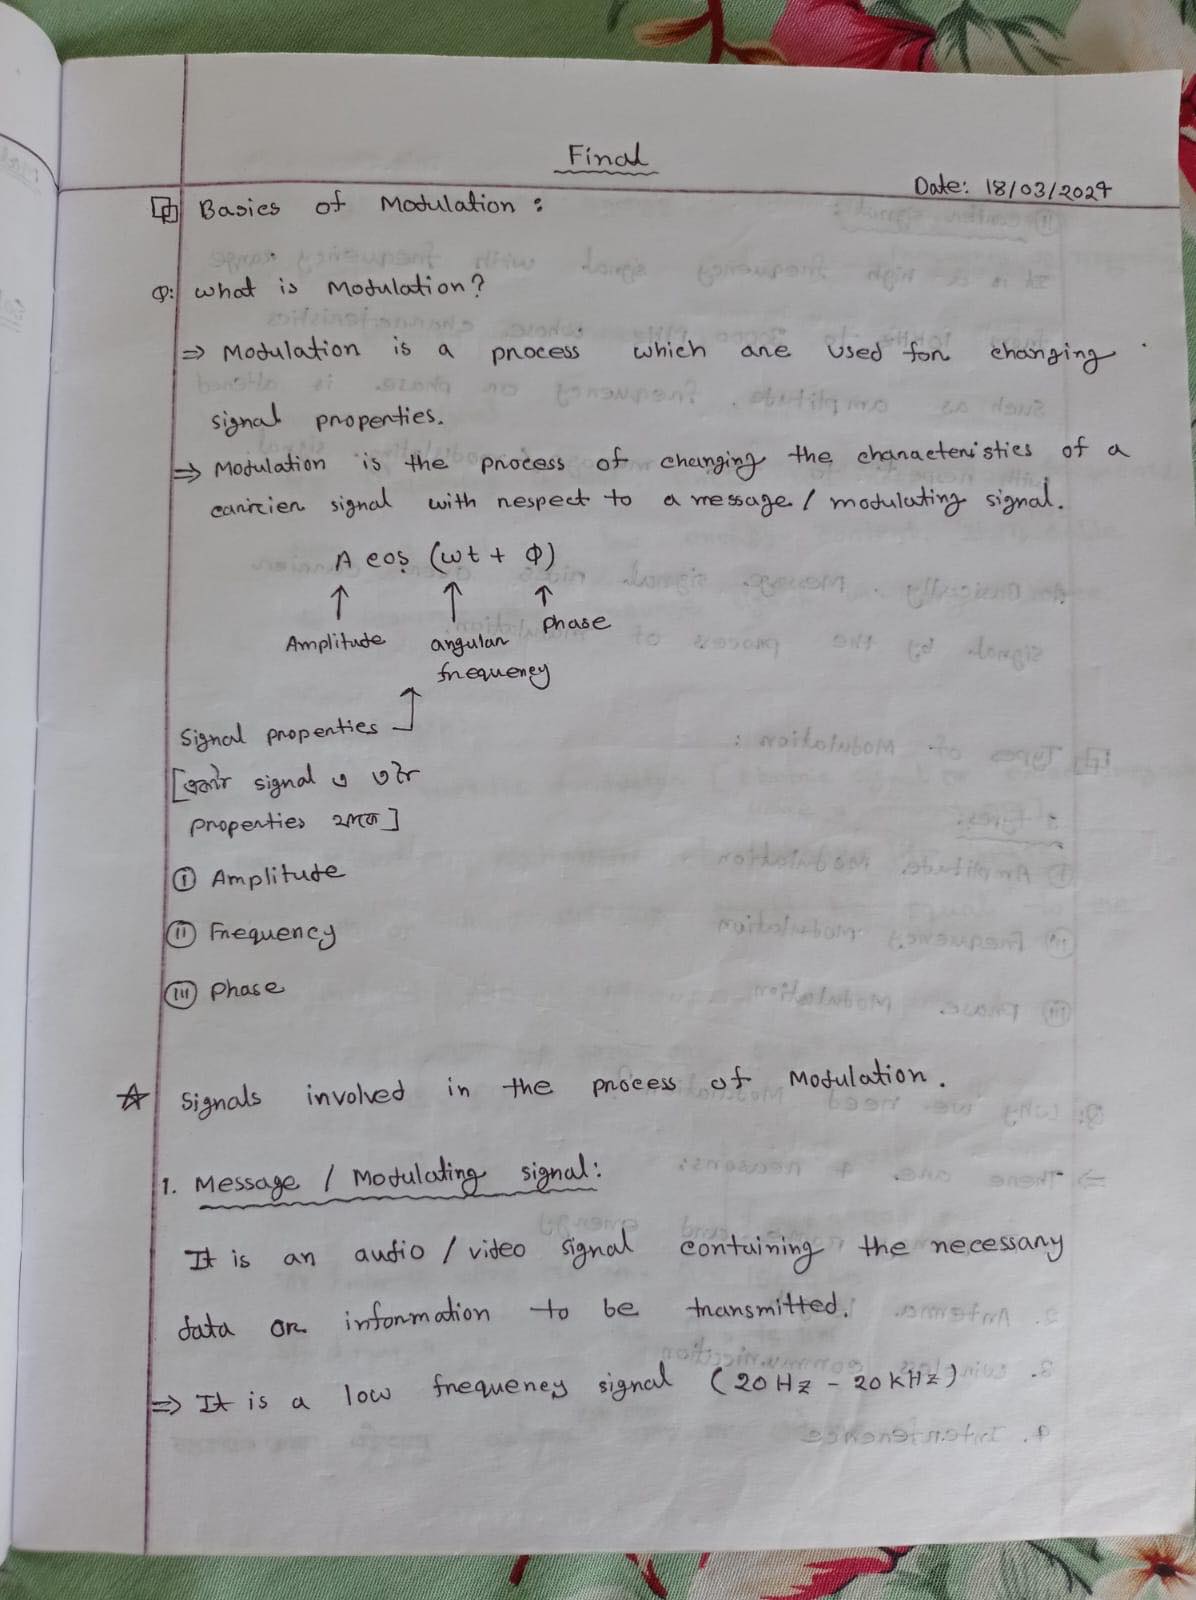 Final
Date: 18/03/2024
Basics of Modulation :
Q: what is Modulation?
⇒ Modulation is a process which are used for changing
signal properties.
⇒ Modulation is the process of changing the characteristics of a
carrier signal with respect to a message / modulating signal.
A cos (ωt + Φ)
↑ ↑ ↑
Amplitude angular phase
frequency
Signal properties
[signal ও ৩টা
properties থাকে]
(i) Amplitude
(ii) Frequency
(iii) Phase
☆ Signals involved in the process of Modulation.
1. Message / Modulating signal:
It is an audio / video signal containing the necessary
data or information to be transmitted.
⇒ It is a low frequency signal (20 Hz - 20 KHz)